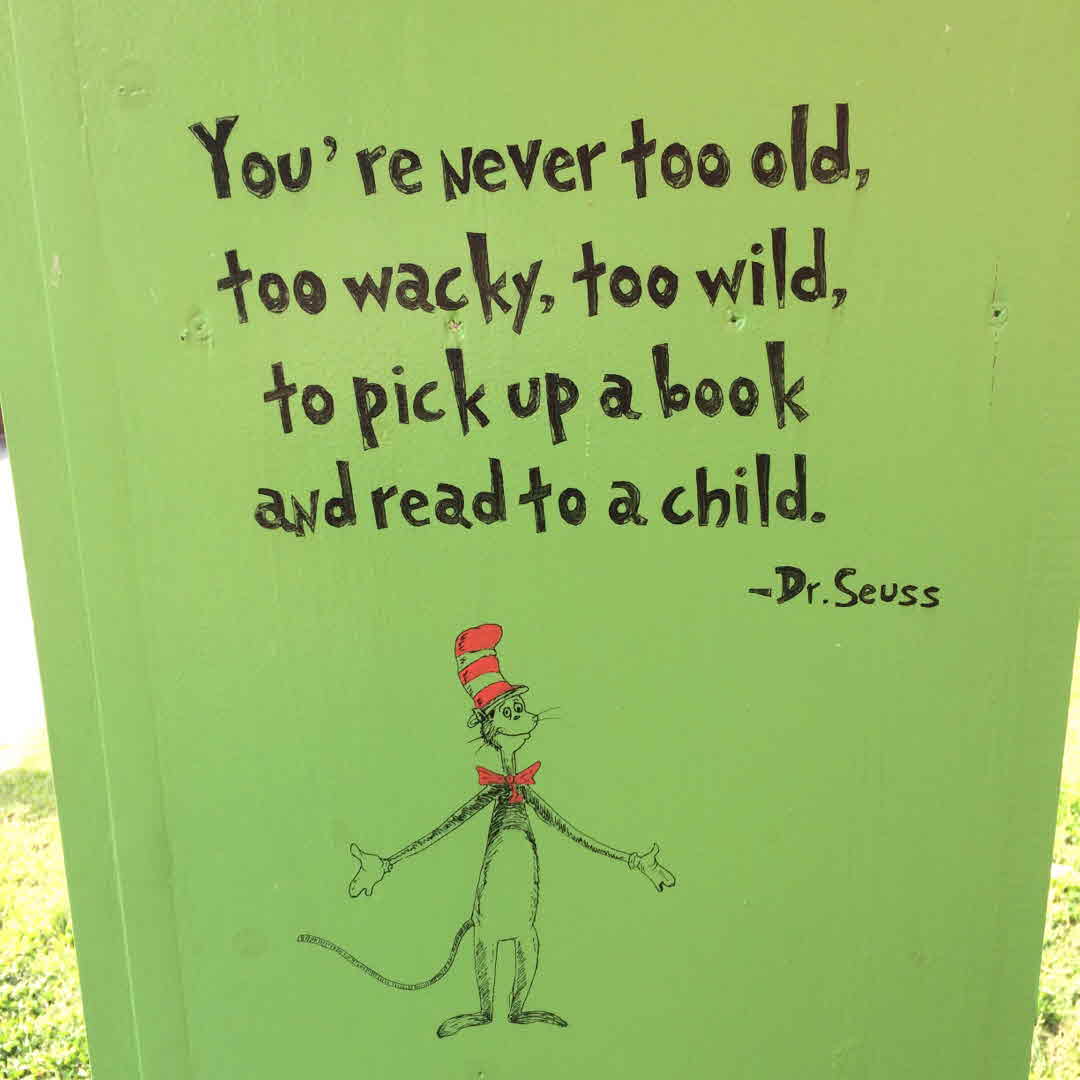 You're never too old,
too wacky, too wild,
to pick up a book
and read to a child.
-Dr. Seuss